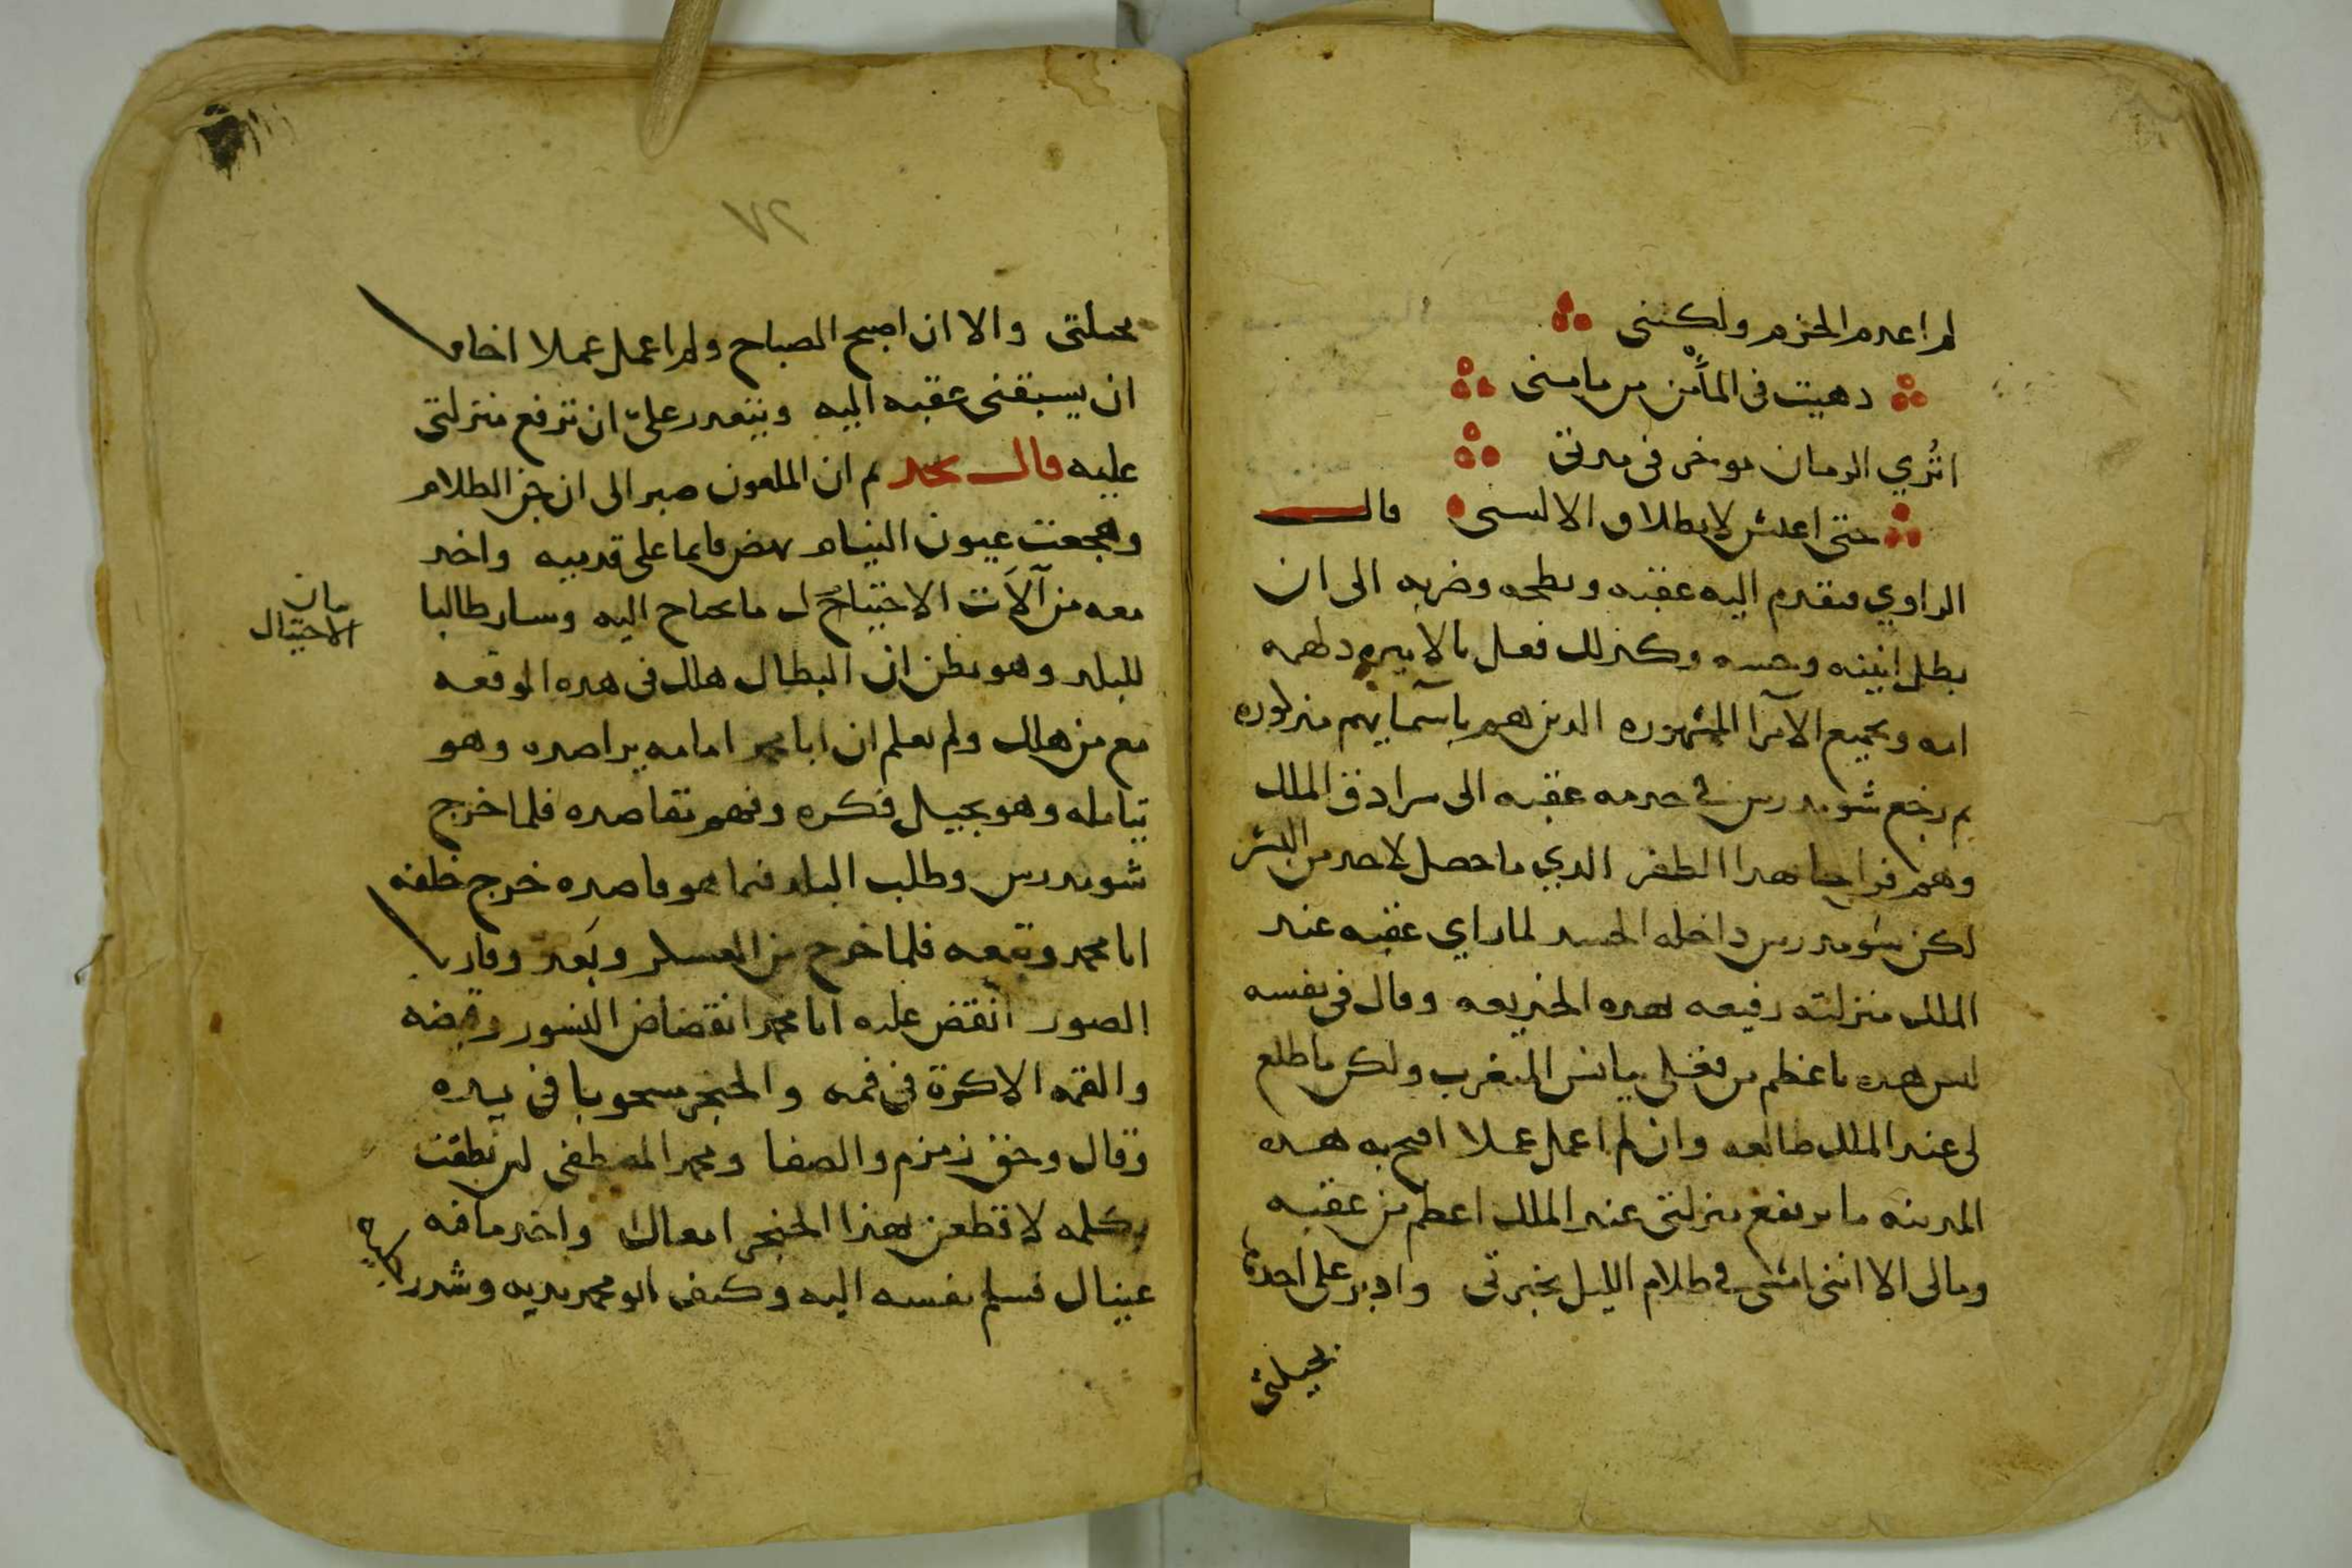 لم اعدم الحزم ولكننى
دهيت فى المأمن من مامنى
اترى الزمان موخر فى مدتى
حتى اعيش لانطلاق الالسنى قال
الراوي فتقدم اليه عقبه وبطحه وضربه الى ان
بطل انينه وحسه وكذلك فعل بالاميره دلهمه
امه وبجميع الآمرا المشهوره الذين هم باسمايهم مذكوره
ثم رجع شومدرس فى خدمه عقبه الى سرادق الملك
وهم فراحا بهذا الظفر الذي ما حصل لاحد من البشر
لكن شومدرس داخله الحسد لما راي عقبه عند
الملك منزلته رفيعه بهذه الخديعه وقال فى نفسه
ليس هذه باعظم من قتلى ميانس المغرب ولكن ما طلع
لى عند الملك طالعه وان لم اعمل عملا افتح به هذه
المدينه ما ترتفع منزلتى عند الملك اعظم من عقبه
ومالى الا اننى امشى فى ظلام الليل بخبرتى وادبر على احدهم
بحيلتى
٧٢
بحيلتى والا ان اصبح الصباح ولم اعمل عملا اخاف
ان يسبقنى عقبه اليه ويتعدر علىّ ان ترفع منزلتى
عليه قال نجد ثم ان الملعون صبر الى ان جن الظلام
وهجعت عيون النيام نهض قايما على قدميه واخد
معه من آلآت الاحتيال ما يحتاج اليه وسار طالبا
بيان
الاحتيال
للبلد وهو يظن ان البطال هلك فى هده الوقعه
مع من هلك ولم يعلم ان ابا محمد امامه يراصده وهو
يتامله وهو يجيل فكره وفهم مقاصده فلما خرج
شومدرس وطلب البلد فيما هو قاصده خرج خلفه
ابا محمد وتبعه فلما خرج من العسكر وبَعد وقارب
الصور انقض عليه ابا محمد انقضاض النسور وقبضه
والقمه الاكرة فى فمه والخنجر مسحوبا فى يده
وقال وحق زمزم والصفا ومحمد المصطفى لين نطقت
بكلمه لاقطعن بهذا الخنجر امعاك واخد مافه
عينال فسلم نفسه اليه وكتف ابو محمد يديه وشدد